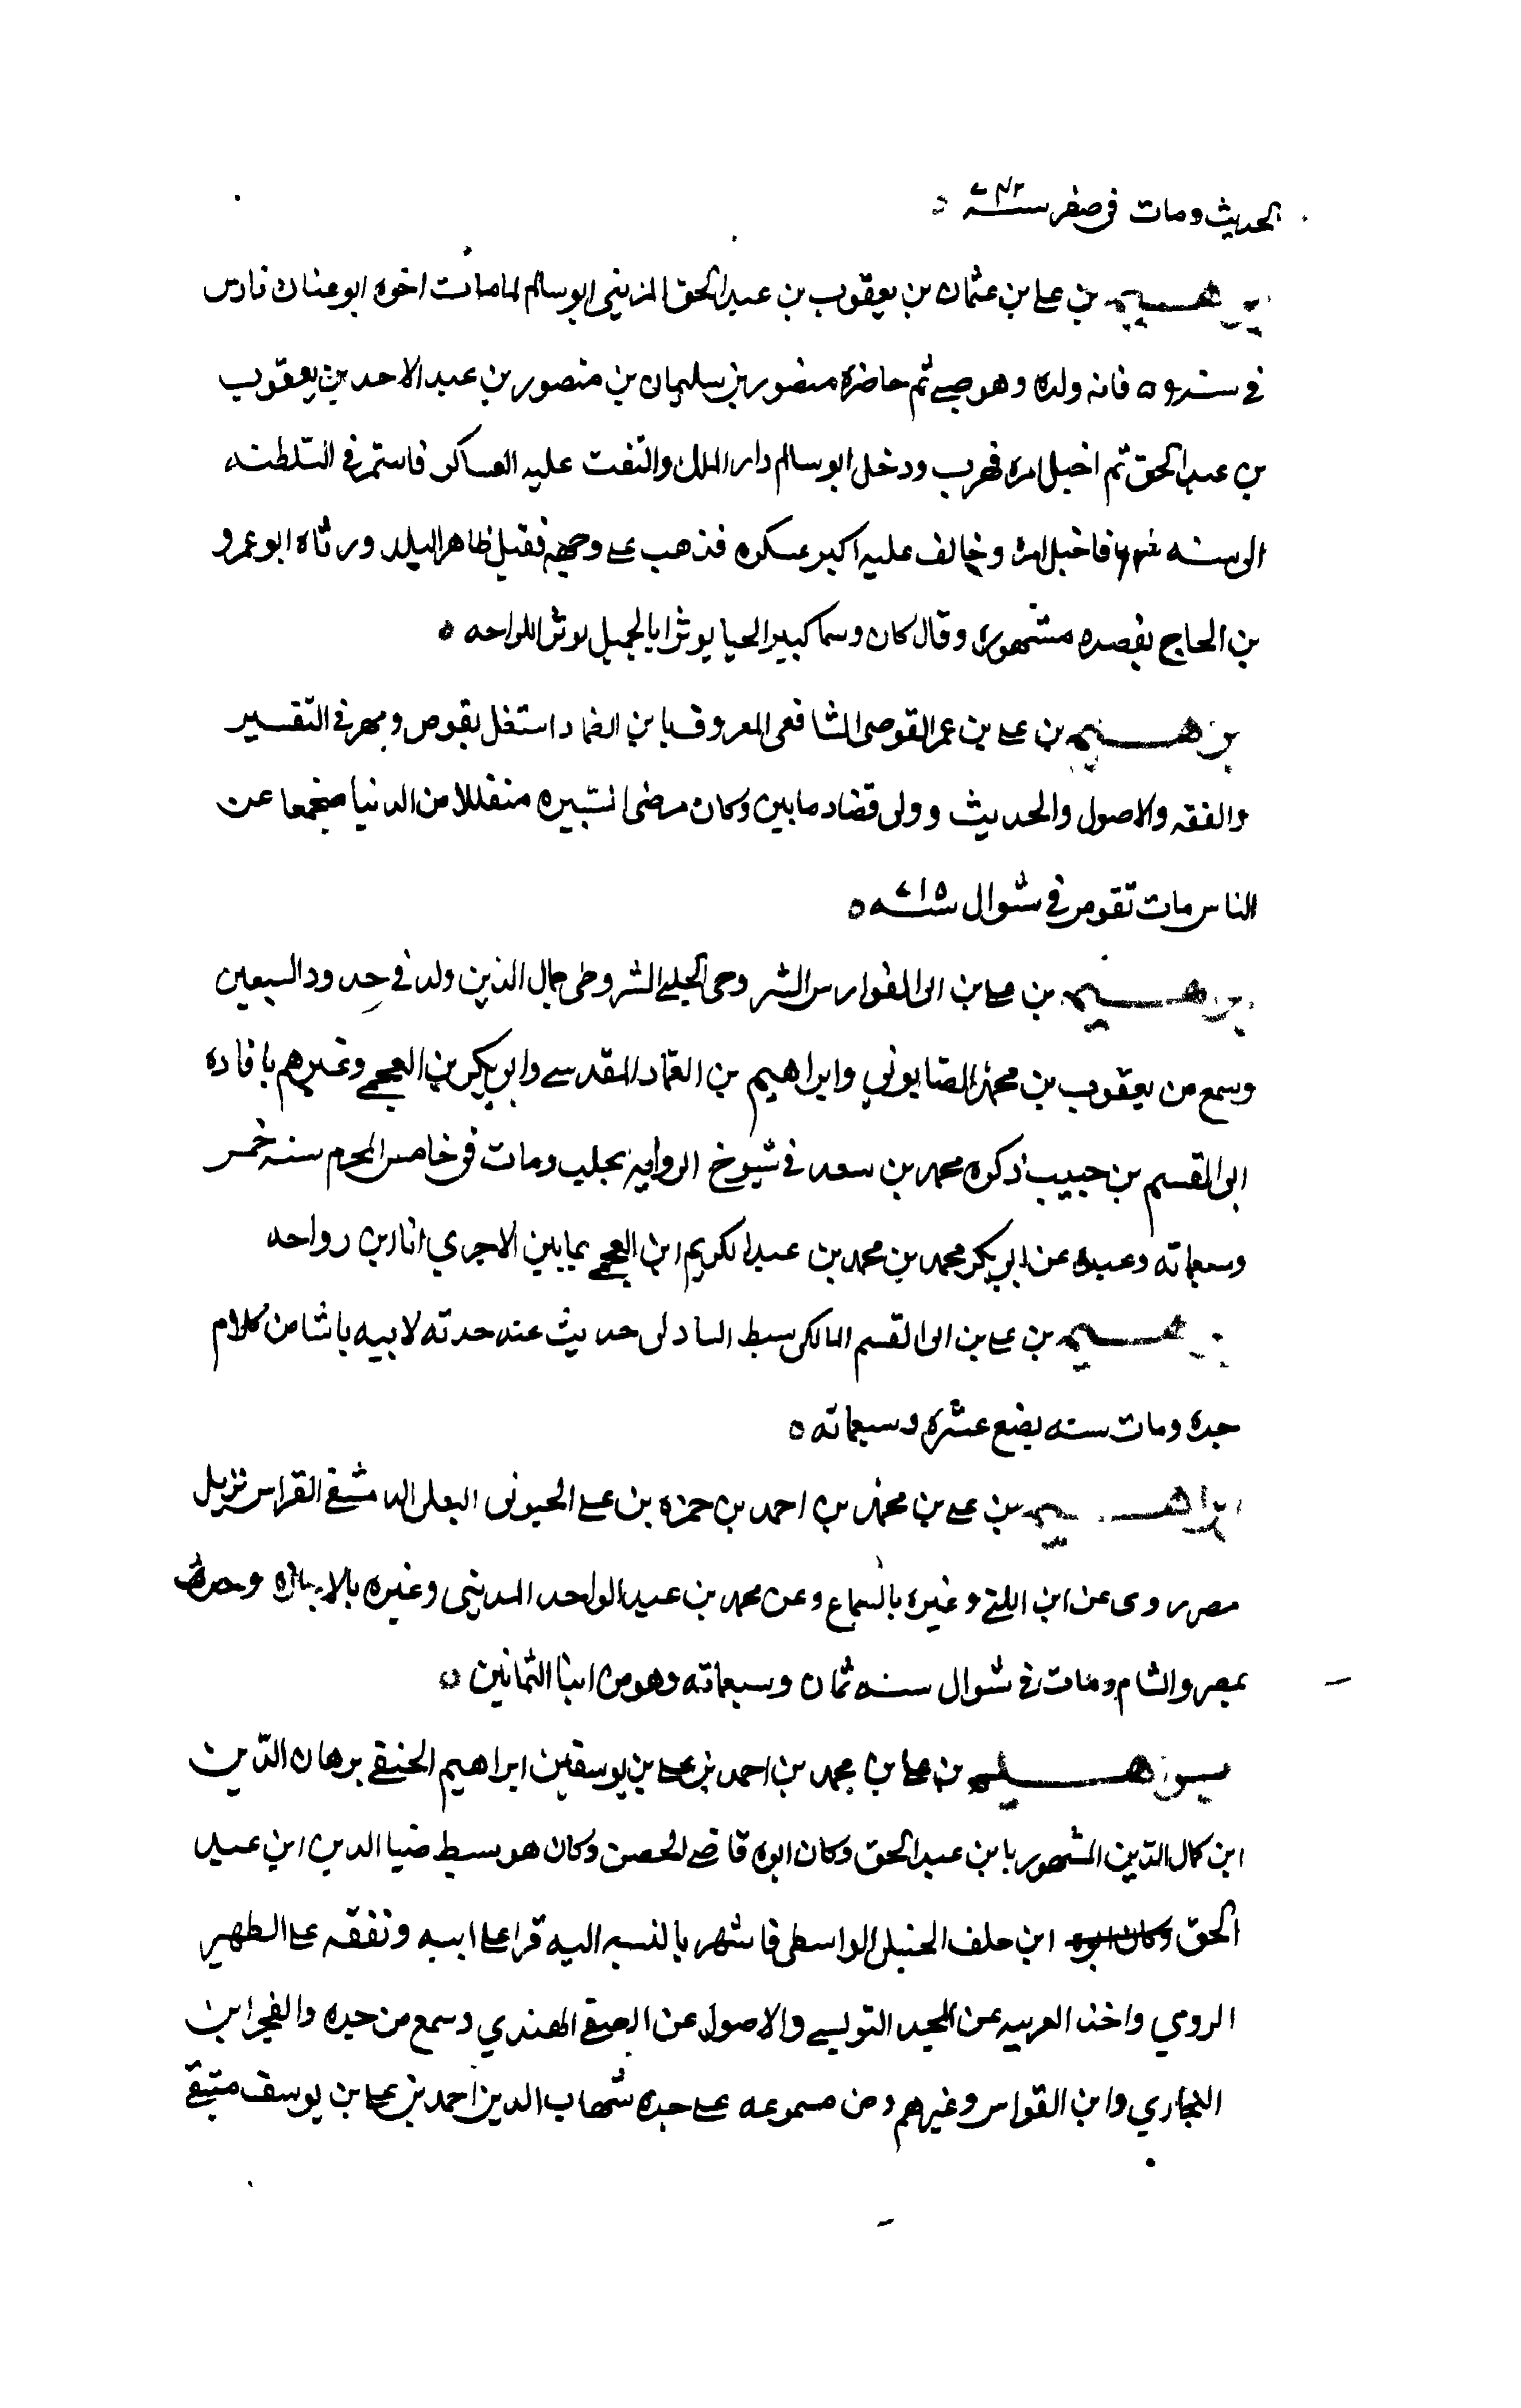 الحديث ومات في صفر سنة
ابراهيم بن علي بن عثمان بن يعقوب بن عبد الحق المزيني ابو سالم لما مات اخوه ابو عنان فارس
في سنة فانه ولده وهو صبي ثم حاضره منصور بن سليمان بن منصور بن عبد الاحد بن يعقوب
بن عبد الحق ثم اختل امره فهرب ودخل ابو سالم دار الملك والتفت عليه العساكر فاستمر في السلطنه
الى سنه فاختل امره وخالف عليه اكبر عسكره فذهب على وجهه فقتل ظاهر البلد ورثاه ابو عمرو
بن الحاج بقصده مشهوره وقال كان وسما كبير الحيا يوثر الراحه ٥
ابرهيم بن علي بن عمر القوصي الشافعي المعروف بابن اشتغل بقوص ومهر في التفسير
والفقه والاصول والحديث وولى قضاء دمامين وكان مرضى السيره متقللا من الدنيا منجمعا عن
الناس مات بقوص في شوال سنة ٧١٥ ٥
ابرهيم بن علي بن ابى الفوارس الشروحى الحلبي الشروطى جمال الدين ولد في حدود السبعين
وسمع من يعقوب بن محمد الصابوني وابراهيم بن العماد المقدسي وابى بكر بن العجمي وغيرهم بافاده
ابى القسم بن حبيب ذكره محمد بن سعد في شيوخ الروايه بحلب ومات في خامس المحرم سنه خمس
وسبعمائه وعبيده عن ابى بكر محمد بن محمد بن عبد الكريم ابن العجمي بمايين الاجري انا ابن رواحه
ابرهيم بن علي بن ابى القسم المالكى سبط الشاذلى حديث عنه حدثه لابيه باشيا من كلام
جده ومات سنه بضع عشره وسبعمائه ٥
ابراهيم بن علي بن محمد بن احمد بن حمزه بن على الحبوبى البعلى الدمشقي القراس نزيل
مصر روى عن ابن اللتى وغيره بالسماع وعن محمد بن عبد الواحد المدينى وغيره بالاجازه وحدث
بمصر والشام ومات في شوال سنه ثمان وسبعمائه وهو من ابنا الثمانين ٥
ابرهيم بن علي بن محمد بن احمد بن علي بن يوسف بن ابراهيم الحنفي برهان الدين
ابن كمال الدين المشهور بابن عبد الحق وكان ابوه قاضي الحصن وكان هو سبط ضيا الدين ابن عبد
الحق وكان ابوه ابن خلف الحنبلى الواسطى فاشهر بالنسبه اليه قرا على ابيه وتفقه على الظهير
الرومي واخذ العربيه عن المجد التونسي والاصول عن الصفي الهندي وسمع من جده والفخر ابن
البخاري وابن القواس وغيرهم ومن مسموعه على جده شهاب الدين احمد بن علي بن يوسف منتقى